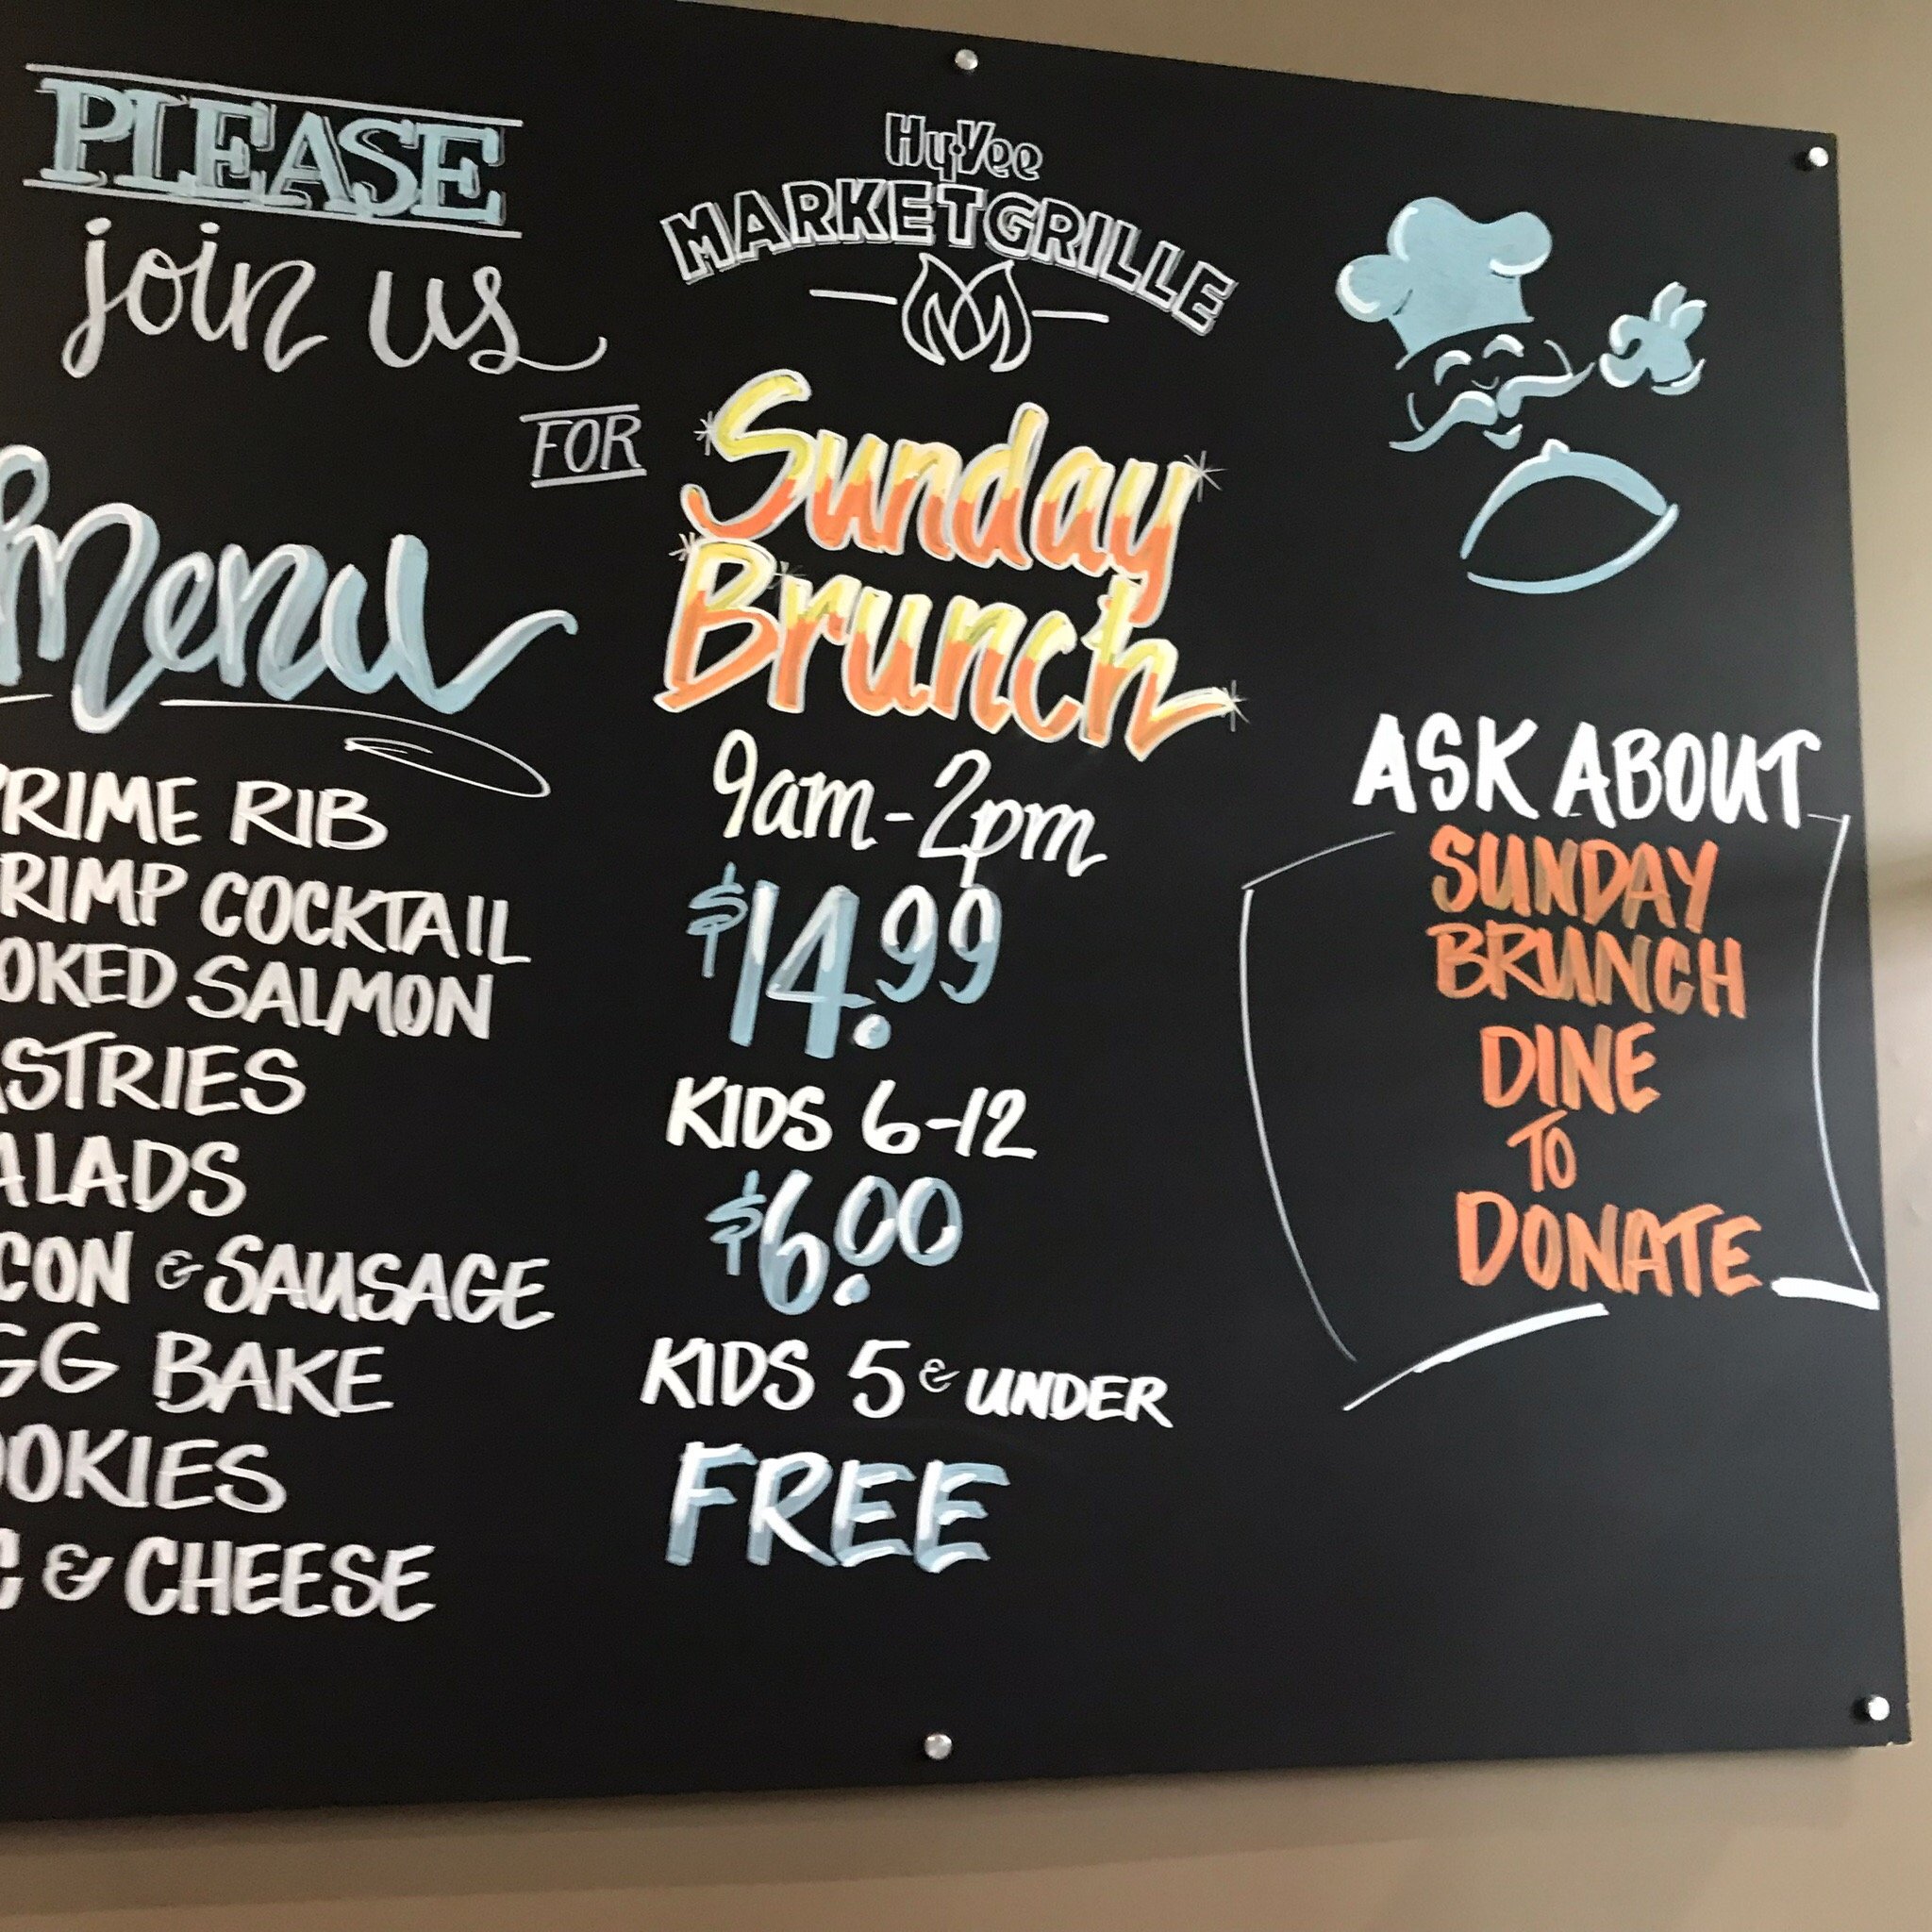 PLEASE
join us
FOR
Menu
RIME RIB
RIMP COCKTAIL
OKED SALMON
STRIES
ALADS
CON & SAUSAGE
GG BAKE
OOKIES
C & CHEESE
HyVee
MARKETGRILLE
Sunday
Brunch
9am-2pm
$14.99
KIDS 6-12
$6.00
KIDS 5 & UNDER
FREE
ASK ABOUT
SUNDAY
BRUNCH
DINE
TO
DONATE